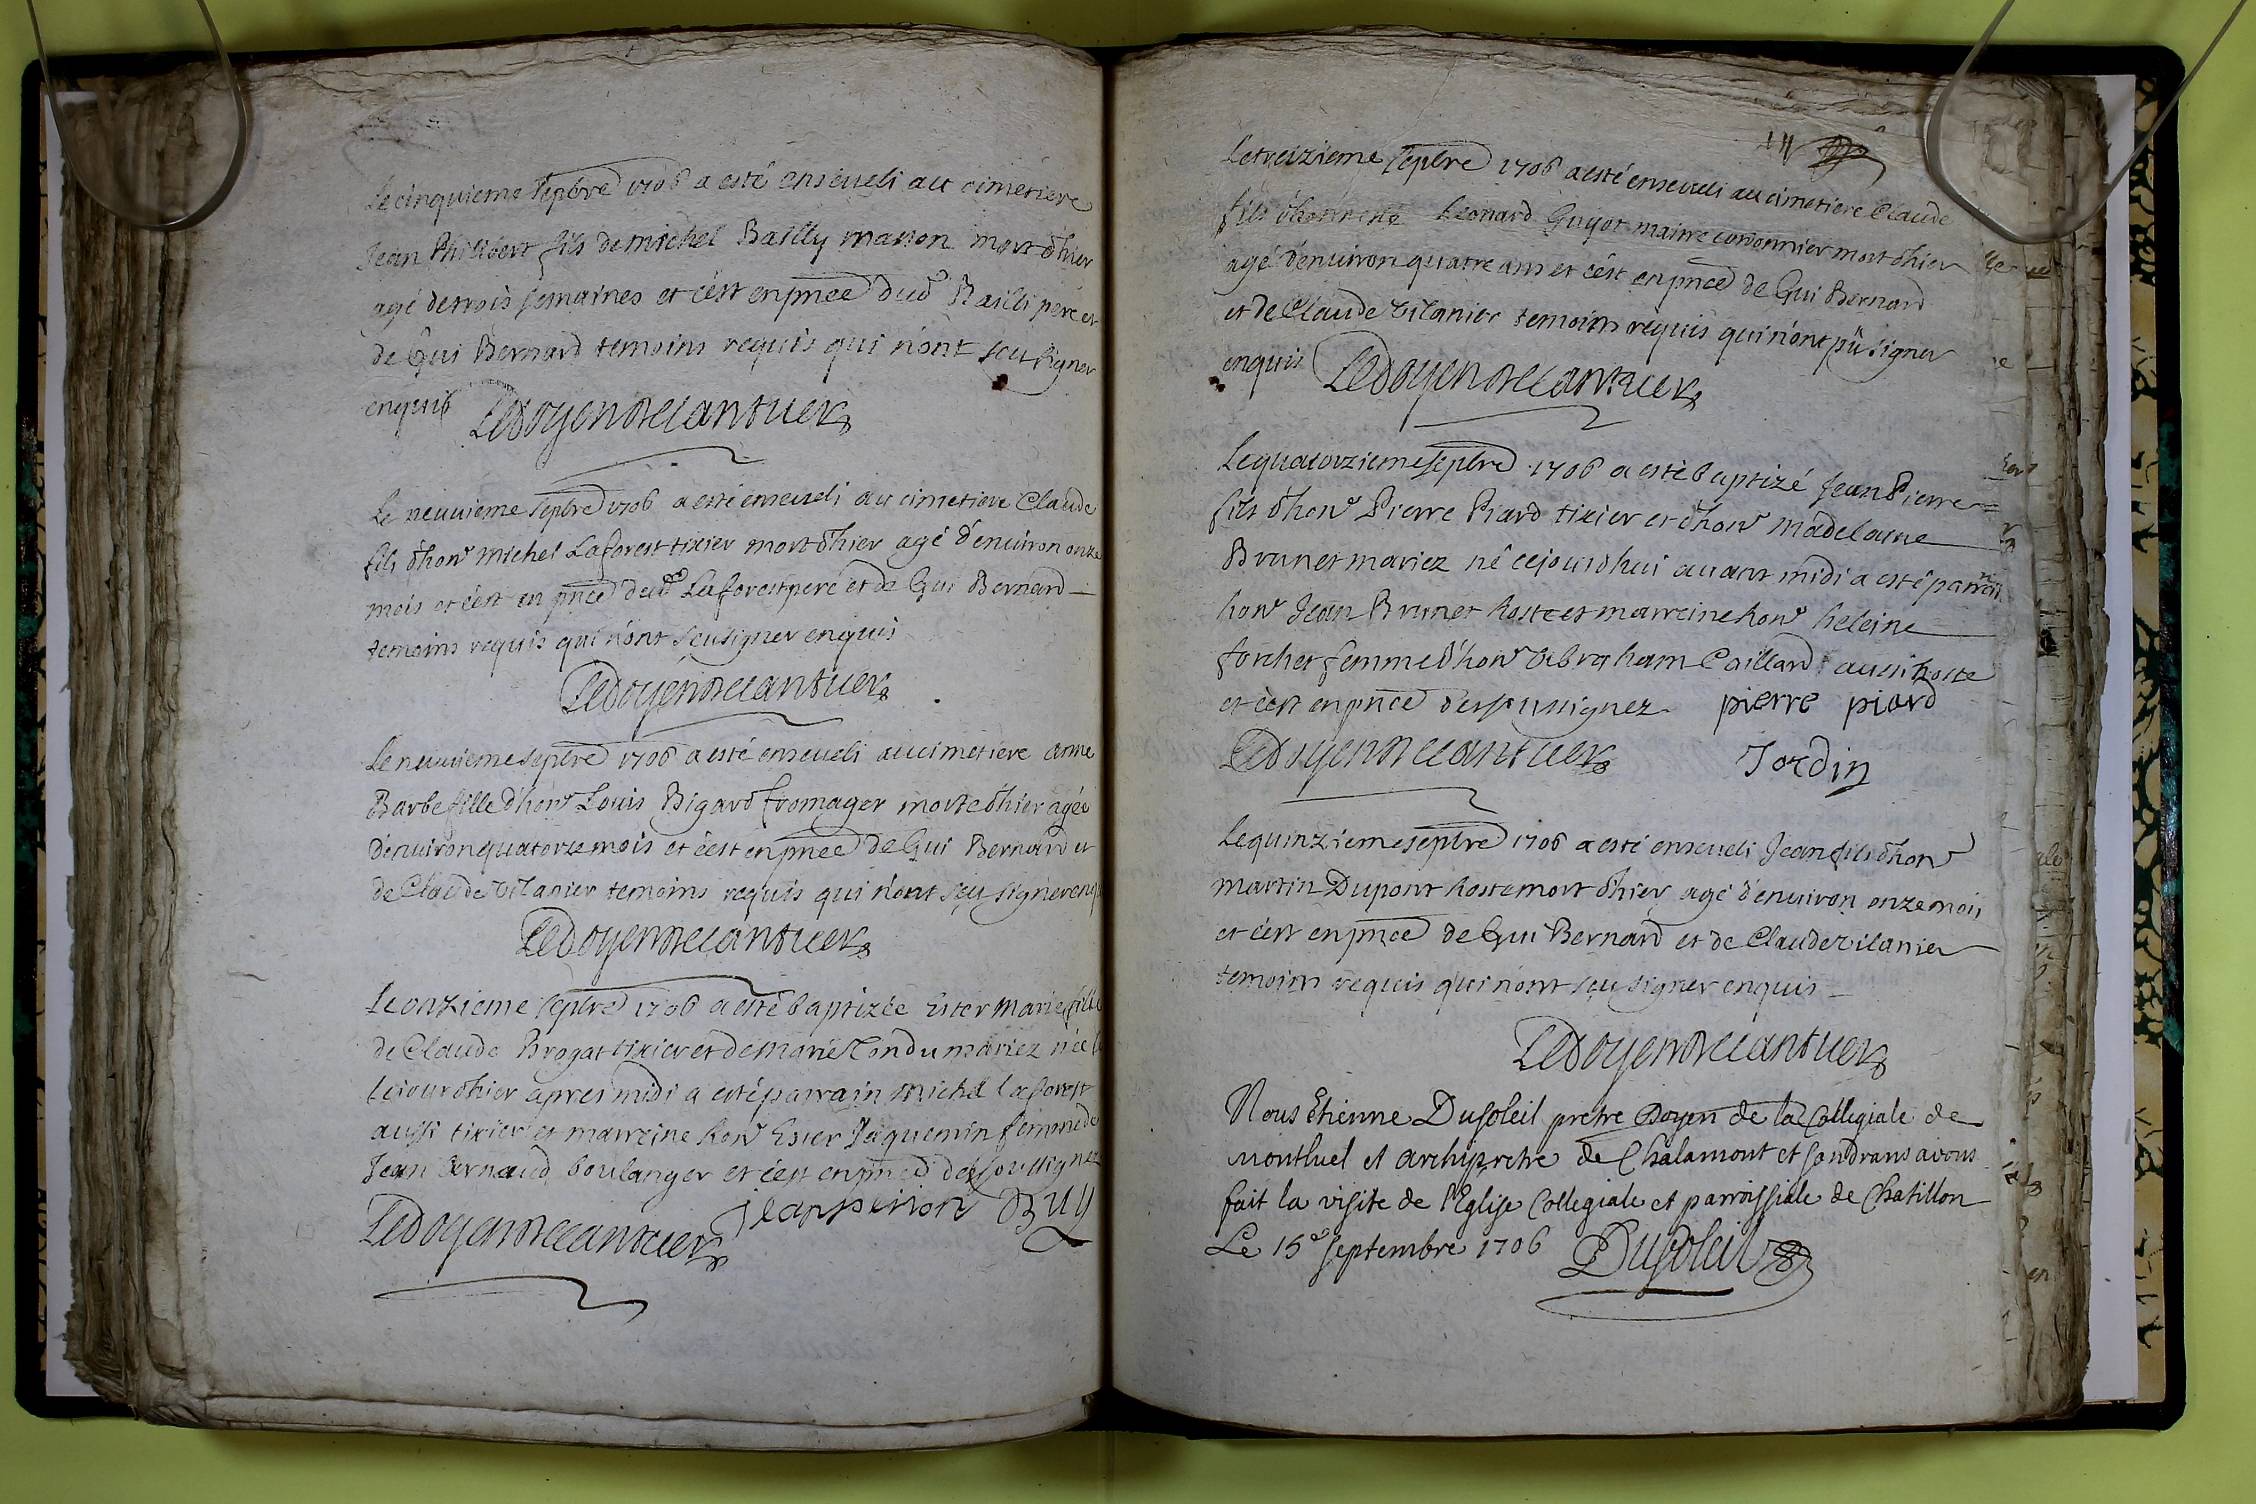 Le cinquieme sepbre 1706 a esté enseveli au cimetiere
Jean Philibert fils de michel Bailly masson mort d'hier
agé de trois semaines et c'est en pnce dud Bailli pere et
de Gui Bernard temoins requis qui n'ont seu signer
enquis Le doyen
Le neuvieme sepbre 1706 a esté enseveli au cimetiere Claude
fils d'hon michel Laforest tixier mort d'hier agé d'environ onze
mois et c'est en pnce dud Laforest pere et de Gui Bernard
temoins requis qui n'ont seu signer enquis
Le doyen
Le neuvieme sepbre 1706 a esté enseveli au cimetiere anne
Barbe fille d'hon Louis Bigard fromager morte d'hier agée
d'environ quatorze mois et c'est en pnce de Gui Bernard et
de Claude vilanier temoins requis qui n'ont seu signer
Le doyen
Le onzieme sepbre 1706 a esté baptizée Ester Marie fille
de Claude Brogat tixier et de marie Tondu mariez née
le jour d'hier apres midi a esté parrain michel laforest
aussi tixier et marreine hon Ester Jaquemin femme de
Jean arnaud boulanger et c'est en pnce des soussignez
Le doyen Buy
Le treizieme sepbre 1706 a esté enseveli au cimetiere Claude
fils d'honneste Leonard Guyot maitre cordonnier mort d'hier
agé d'environ quatre ans et c'est en pnce de Gui Bernard
et de Claude vilanier temoins requis qui n'ont pü signer
enquis Le doyen
Le quatorzieme sepbre 1706 a esté baptizé Jean Pierre
fils d'hon Pierre Piard tixier et d'hon madelaine
Brunet mariez né cejourd'hui avant midi a esté parrain
hon Jean Brunet hoste et marreine hon heleine
forchet femme d'hon abraham Caillard aussi hoste
et c'est en pnce des soussignez pierre piard
Le doyen Jordin
Le quinzieme sepbre 1706 a esté enseveli Jean fils d'hon
martin Dupont hoste mort d'hier agé d'environ onze mois
et c'est en pnce de Gui Bernard et de Claude vilanier
temoins requis qui n'ont seu signer enquis
Le doyen
Nous Etienne Dusoleil pretre Doyen de la Collegiale de
montluel et archipretre de Chalamont et sandrans avons
fait la visite de l'Eglise Collegiale et parroissiale de Chatillon
Le 15e septembre 1706 Dusoleil